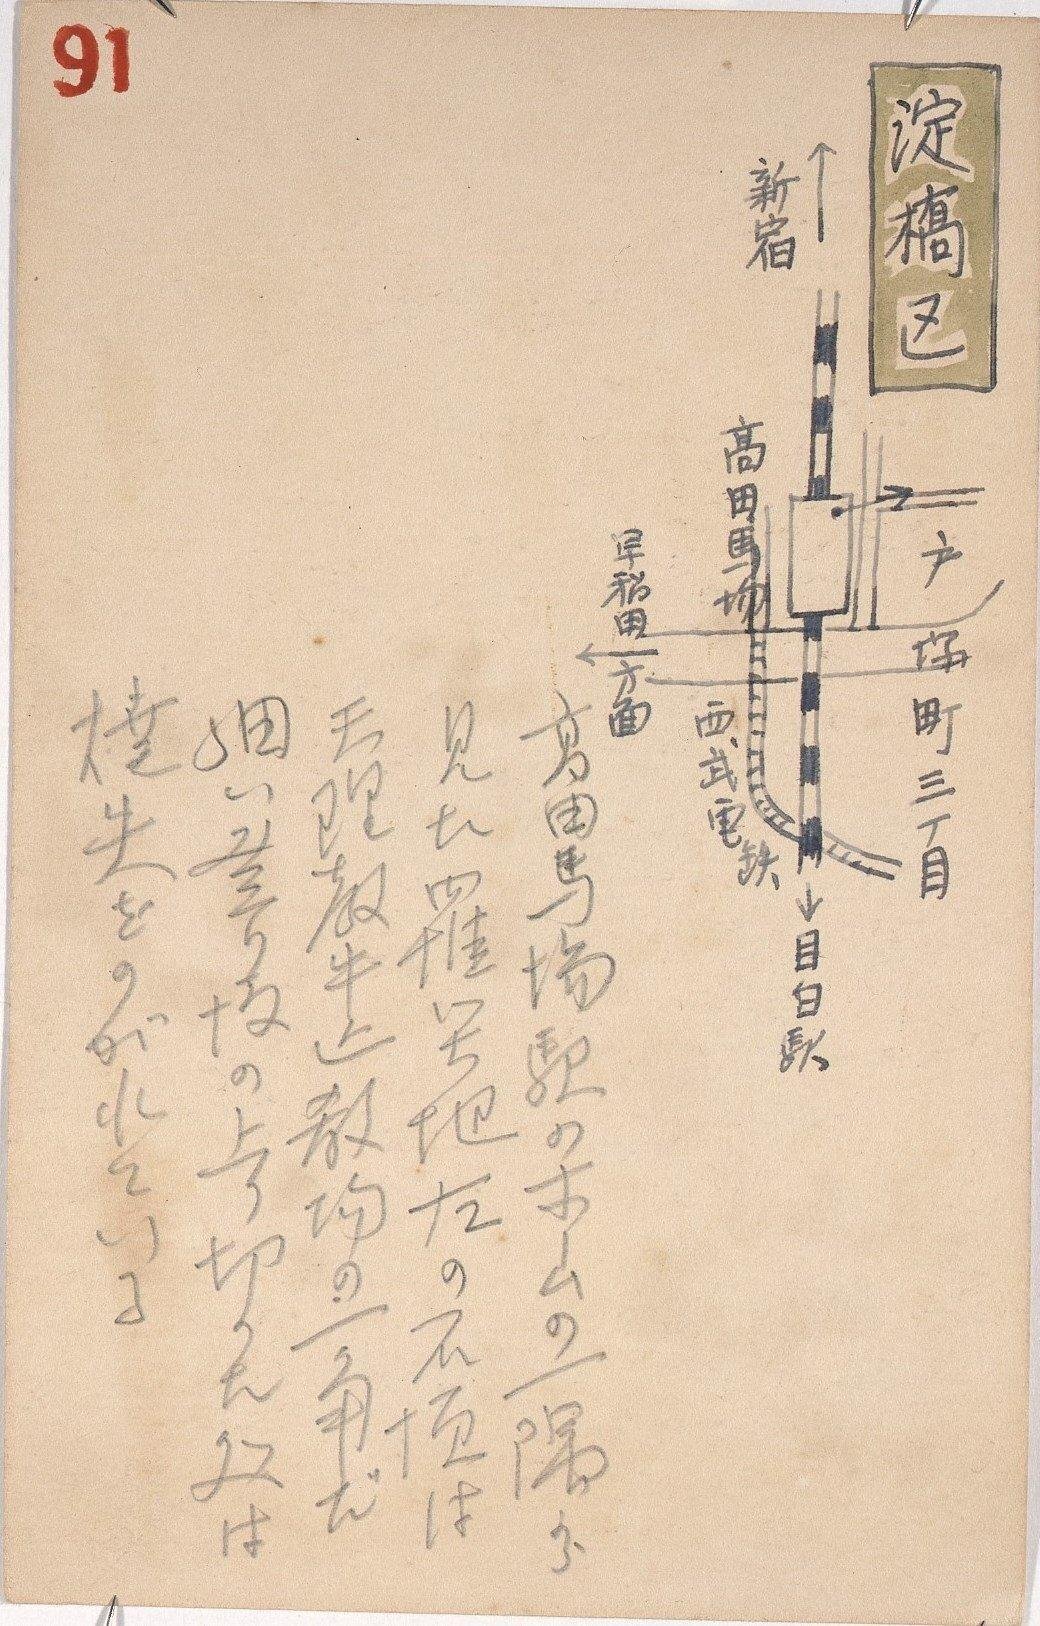 91
淀橋区
新宿
高田馬場
戸塚町三丁目
早稲田方面
西武電鉄
目白駅
高田馬場駅のホームの一隅から
見た罹災地左の石垣は
天理教牛込教場の一角だ
細い登り坂の上り切った処は
焼失をのがれている